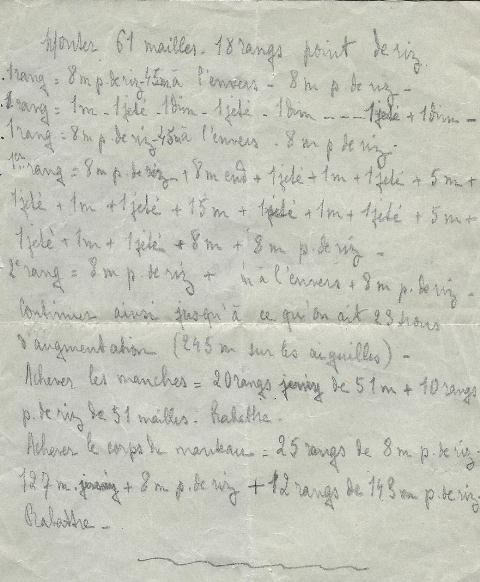 Monter 61 mailles. 18 rangs point de riz.
1 rang = 8 m p. de riz - 45 m à l'envers - 8 m p. de riz -
1 rang = 1 m - 1 jeté - 1 dim - 1 jeté - 1 dim - - - - 1 jeté + 1 dim -
1 rang = 8 m p. de riz - 45 m à l'envers - 8 m p. de riz -
1er rang = 8 m p. de riz + 8 m end + 1 jeté + 1 m + 1 jeté + 5 m +
1 jeté + 1 m + 1 jeté + 15 m + 1 jeté + 1 m + 1 jeté + 5 m +
1 jeté + 1 m + 1 jeté + 8 m + 8 m p. de riz -
2e rang = 8 m p. de riz + m à l'envers + 8 m p. de riz -
Continuer ainsi jusqu'à ce qu'on ait 23 trous
d'augmentation (245 m sur les aiguilles) -
Achever les manches = 20 rangs de 51 m + 10 rangs
p. de riz de 51 mailles. Rabattre.
Achever le corps de manteau = 25 rangs de 8 m p. de riz -
127 m + 8 m p. de riz + 12 rangs de 143 m p. de riz
Rabattre -